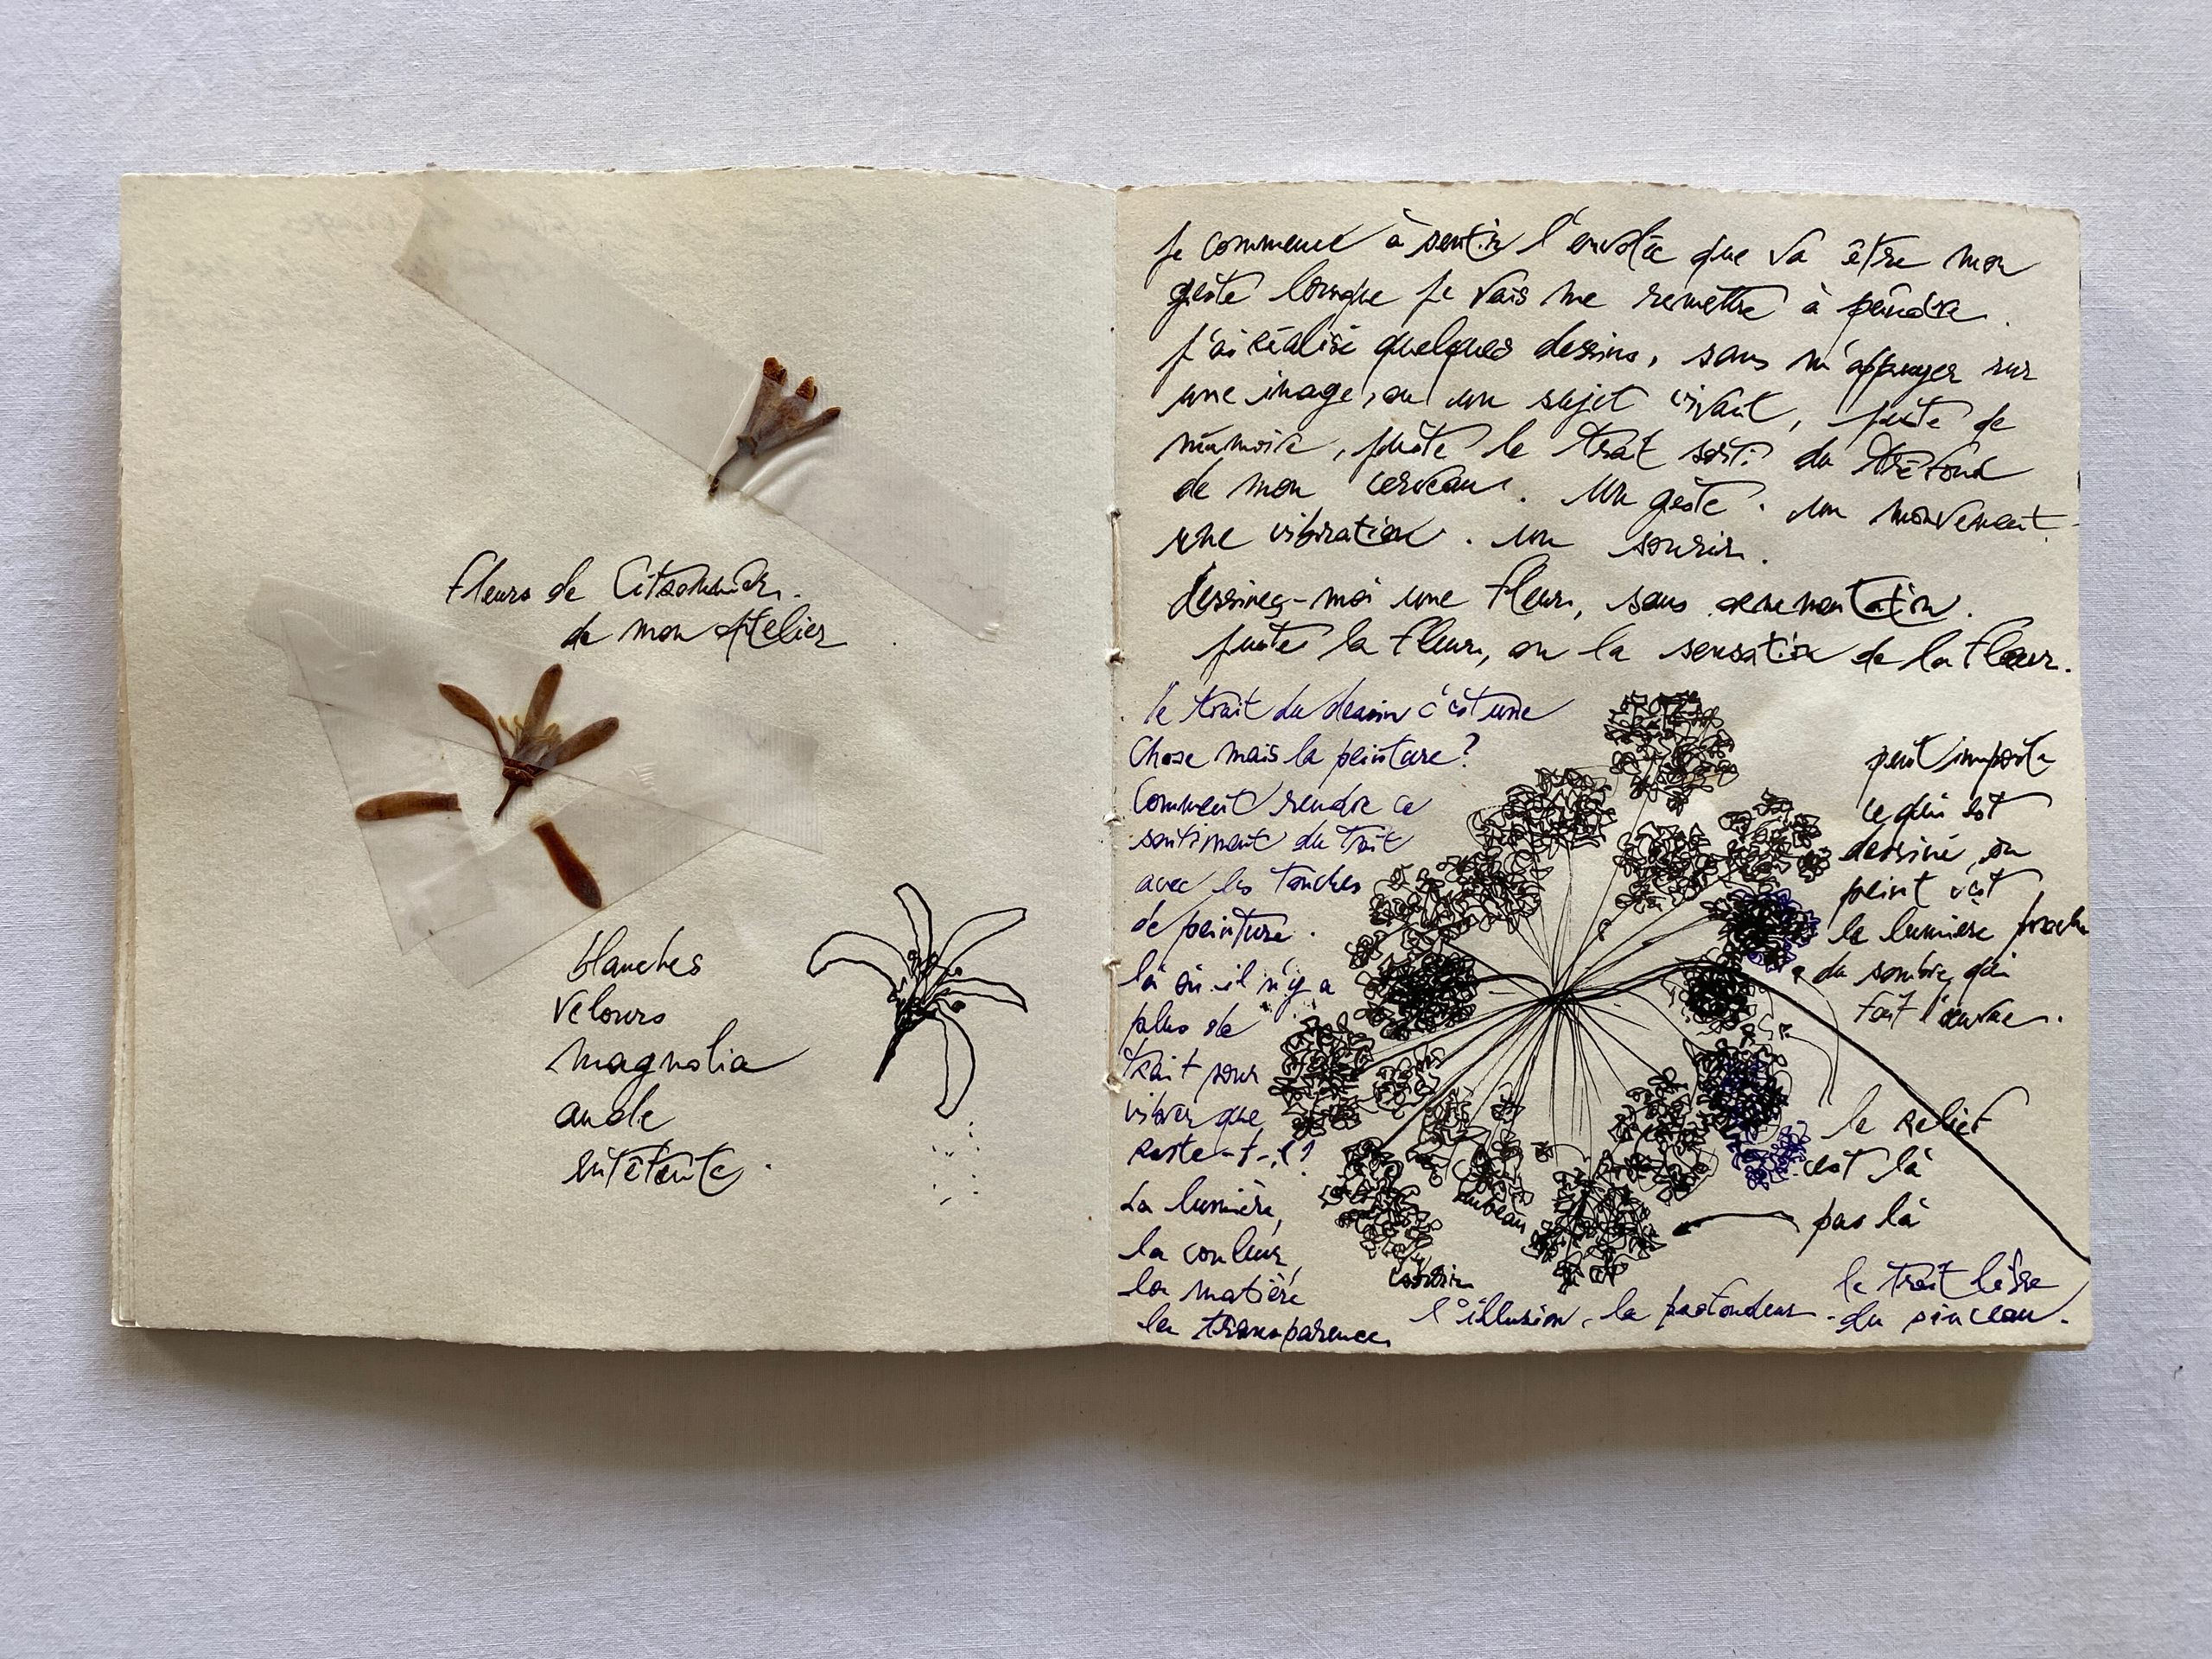 fleurs de Citronnier.
de mon Atelier
blanches
velours
magnolia
ande
entêtante.
Je commence à sentir l'envolée que va être mon
geste lorsque je vais me remettre à peindre.
J'ai réalisé quelques dessins, sans m'appuyer sur
une image, ou un sujet vivant, juste de
mémoire, juste le trait sorti du tréfond
de mon cerveau. Un geste. un mouvement.
une vibration. un sourir.
dessinez-moi une fleur, sans
juste la fleur, ou la sensation de la fleur.
le trait du dessin c'est une
chose mais la peinture?
Comment rendre ce
sentiment du trait
avec les touches
de peinture.
là où il n'y a
plus de
trait pour
vibrer que
reste-t-il?
La lumière,
la couleur,
la matière
la transparence,
peut importe
ce qui est
dessiné, ou
peint c'est
la lumière
du sombre, qui
fait l'œuvre.
le relief
est là
pas là
l'illusion, la profondeur. le trait libre
du pinceau.